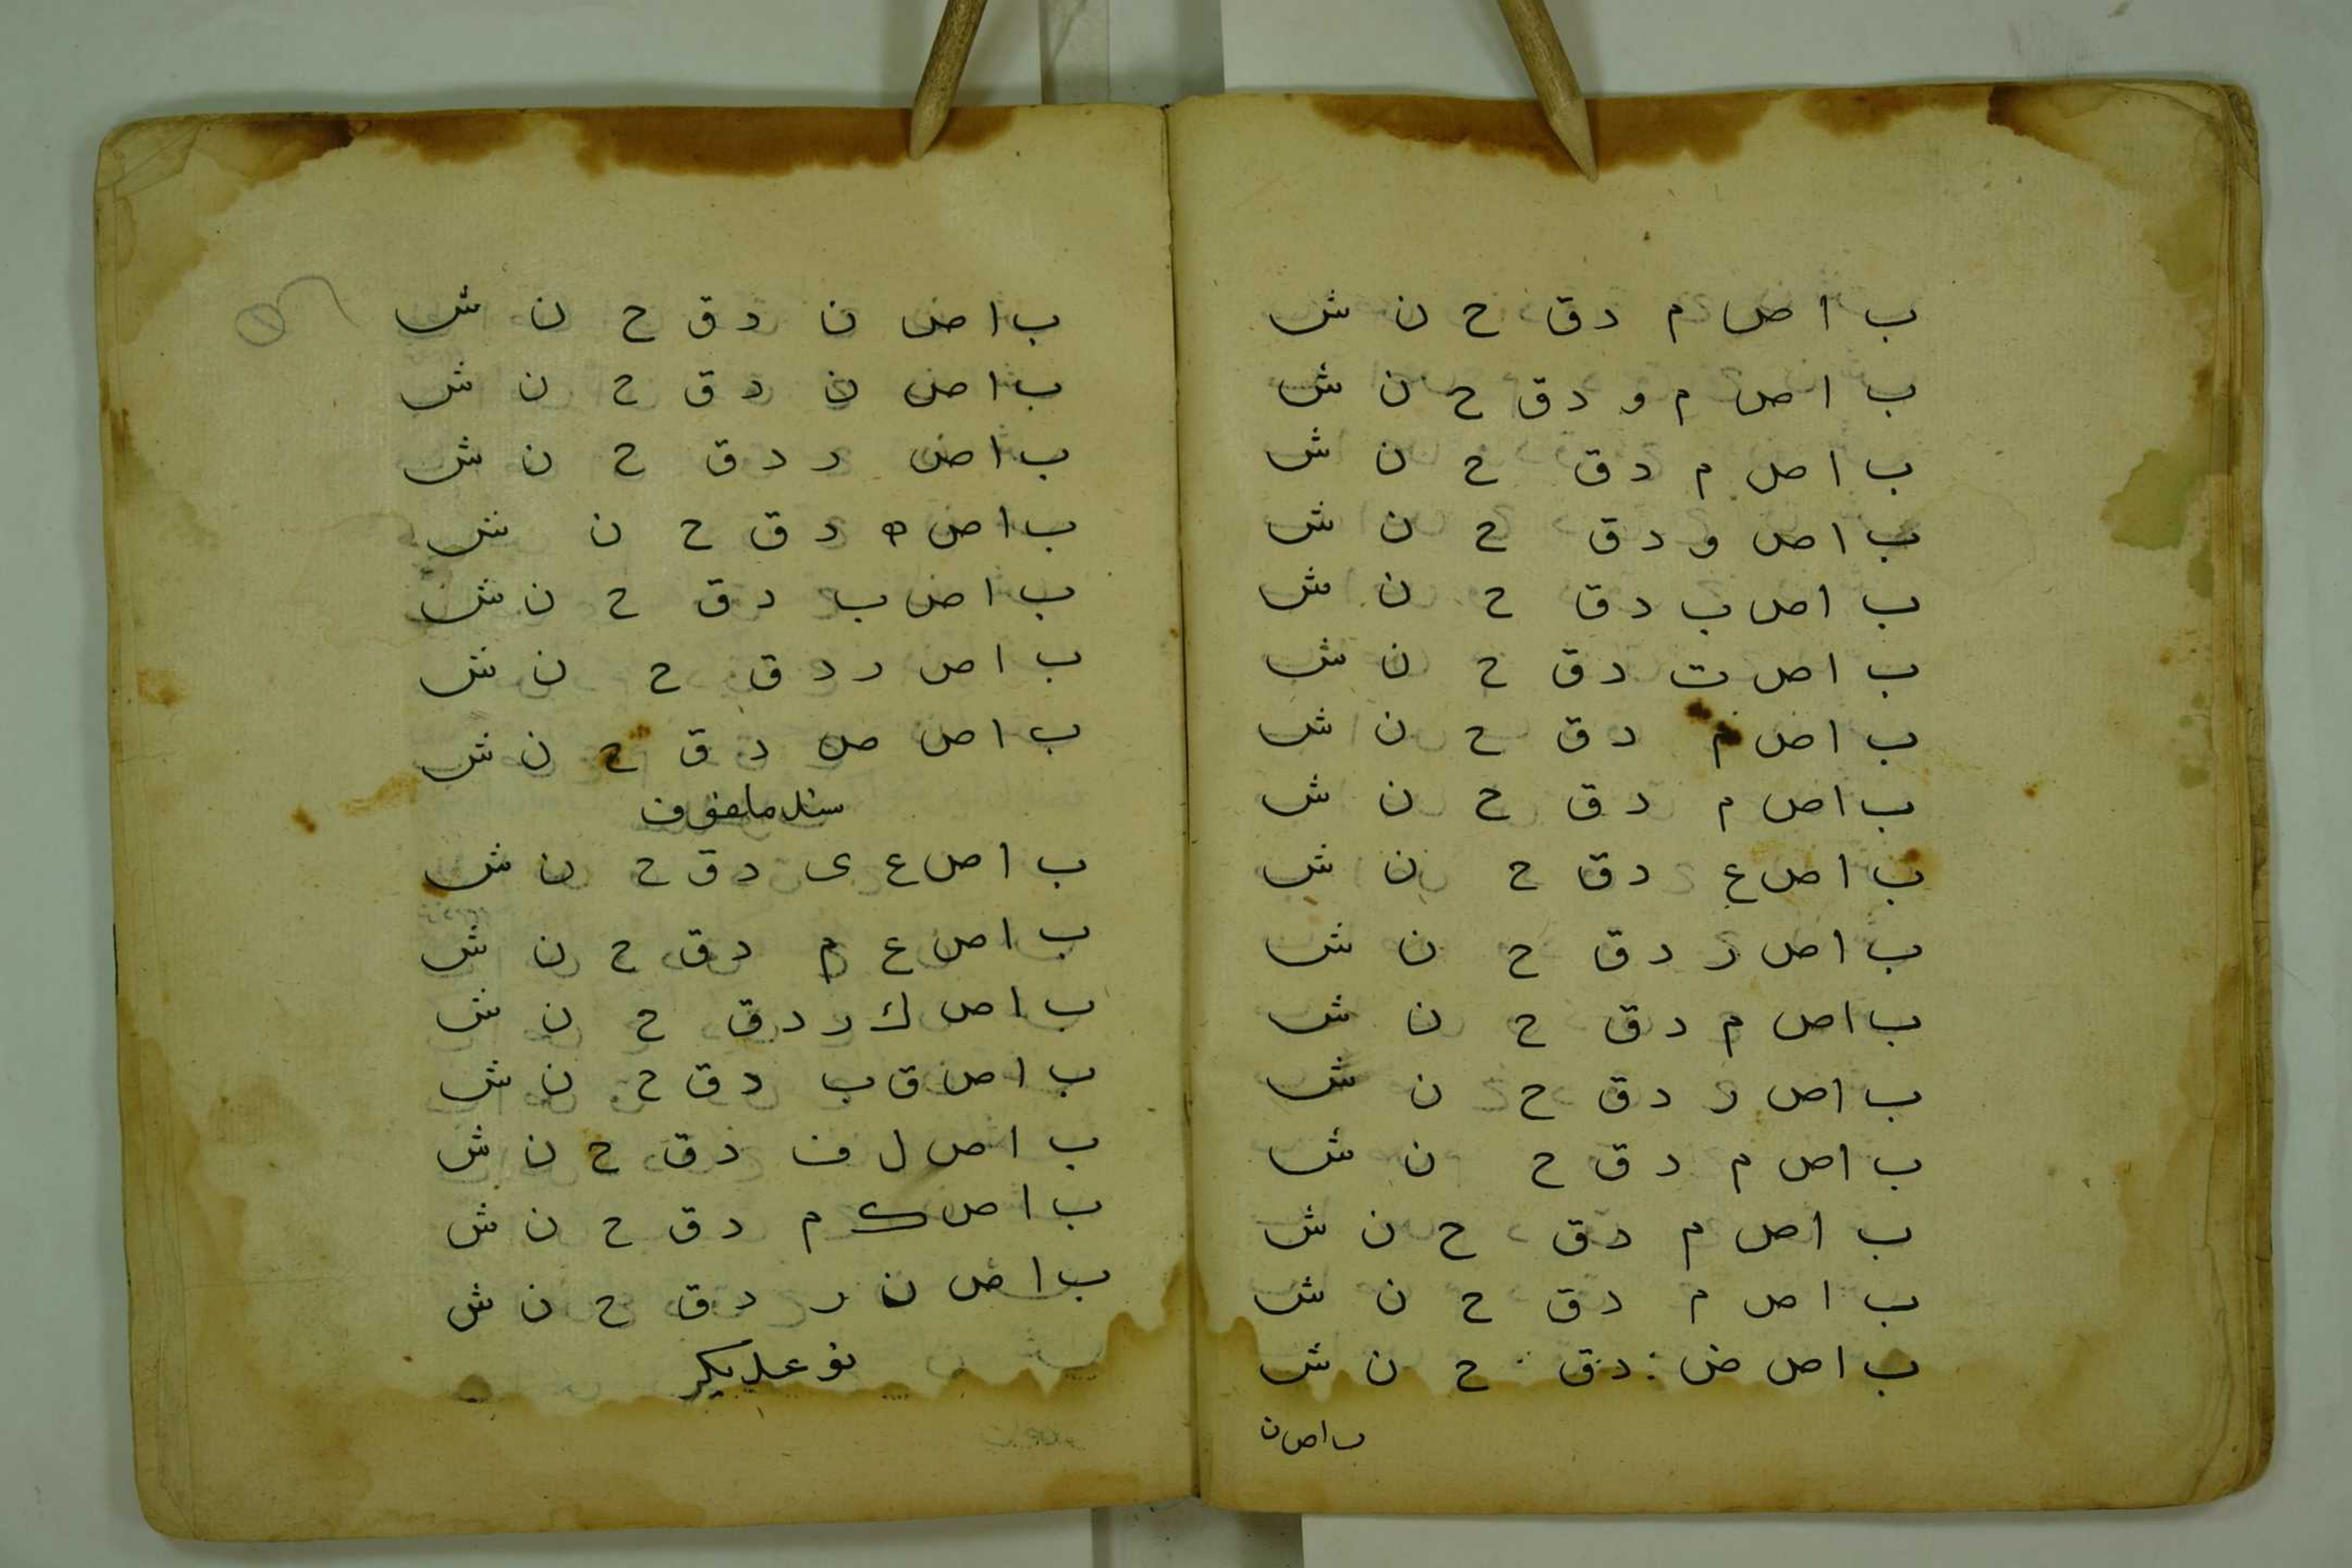 ب ا ص م د ق ح ن ش
ب ا ص م و د ق ح ن ش
ب ا ص م د ق ح ن ش
ب ا ص و د ق ح ن ش
ب ا ص ب د ق ح ن ش
ب ا ص ت د ق ح ن ش
ب ا ص م د ق ح ن ش
ب ا ص م د ق ح ن ش
ب ا ص ع د ق ح ن ش
ب ا ص ر د ق ح ن ش
ب ا ص م د ق ح ن ش
ب ا ص ر د ق ح ن ش
ب ا ص م د ق ح ن ش
ب ا ص م د ق ح ن ش
ب ا ص م د ق ح ن ش
ب ا ص ض د ق ح ن ش
ب ا ص ن
ب ا ص ن د ق ح ن ش
ب ا ص ن د ق ح ن ش
ب ا ص ر د ق ح ن ش
ب ا ص ه د ق ح ن ش
ب ا ص ب د ق ح ن ش
ب ا ص ر د ق ح ن ش
ب ا ص ص د ق ح ن ش
ملفوف
ب ا ص ع ى د ق ح ن ش
ب ا ص ع م د ق ح ن ش
ب ا ص ك ر د ق ح ن ش
ب ا ص ق ب د ق ح ن ش
ب ا ص ل ف د ق ح ن ش
ب ا ص ك م د ق ح ن ش
ب ا ص ن ر د ق ح ن ش
نوعديكر